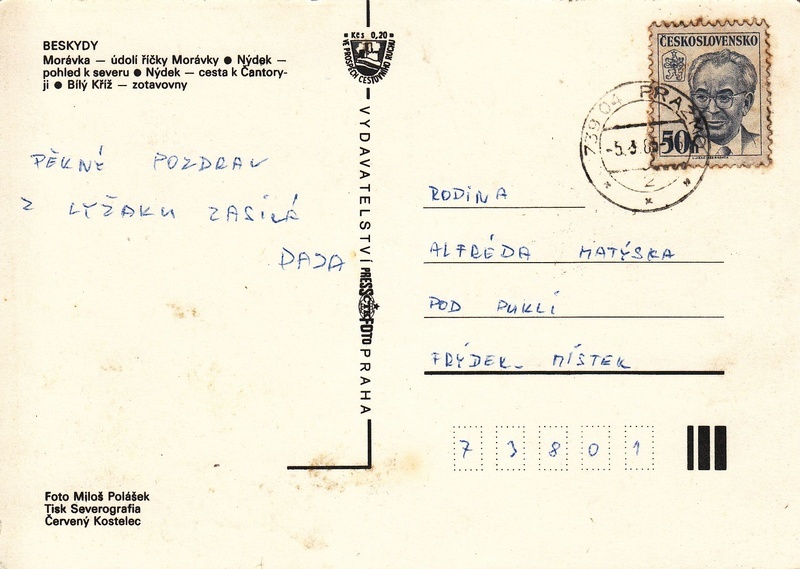 BESKYDY
Morávka — údolí říčky Morávky ● Nýdek —
pohled k severu ● Nýdek — cesta k Čantory-
ji ● Bílý Kříž — zotavovny
Kčs 0,20
VE PROSPĚCH CESTOVNÍHO RUCHU
ČESKOSLOVENSKO
50h
739 04 PRAŽMO
-5.3.8
2
PĚKNÝ POZDRAV
Z LYŽAKU ZASÍLÁ
DAJA
VYDAVATELSTVÍ PRESSFOTO PRAHA
RODINA
ALFRÉDA MATÝSKA
POD PUKLÍ
FRÝDEK - MÍSTEK
73801
Foto Miloš Polášek
Tisk Severografia
Červený Kostelec